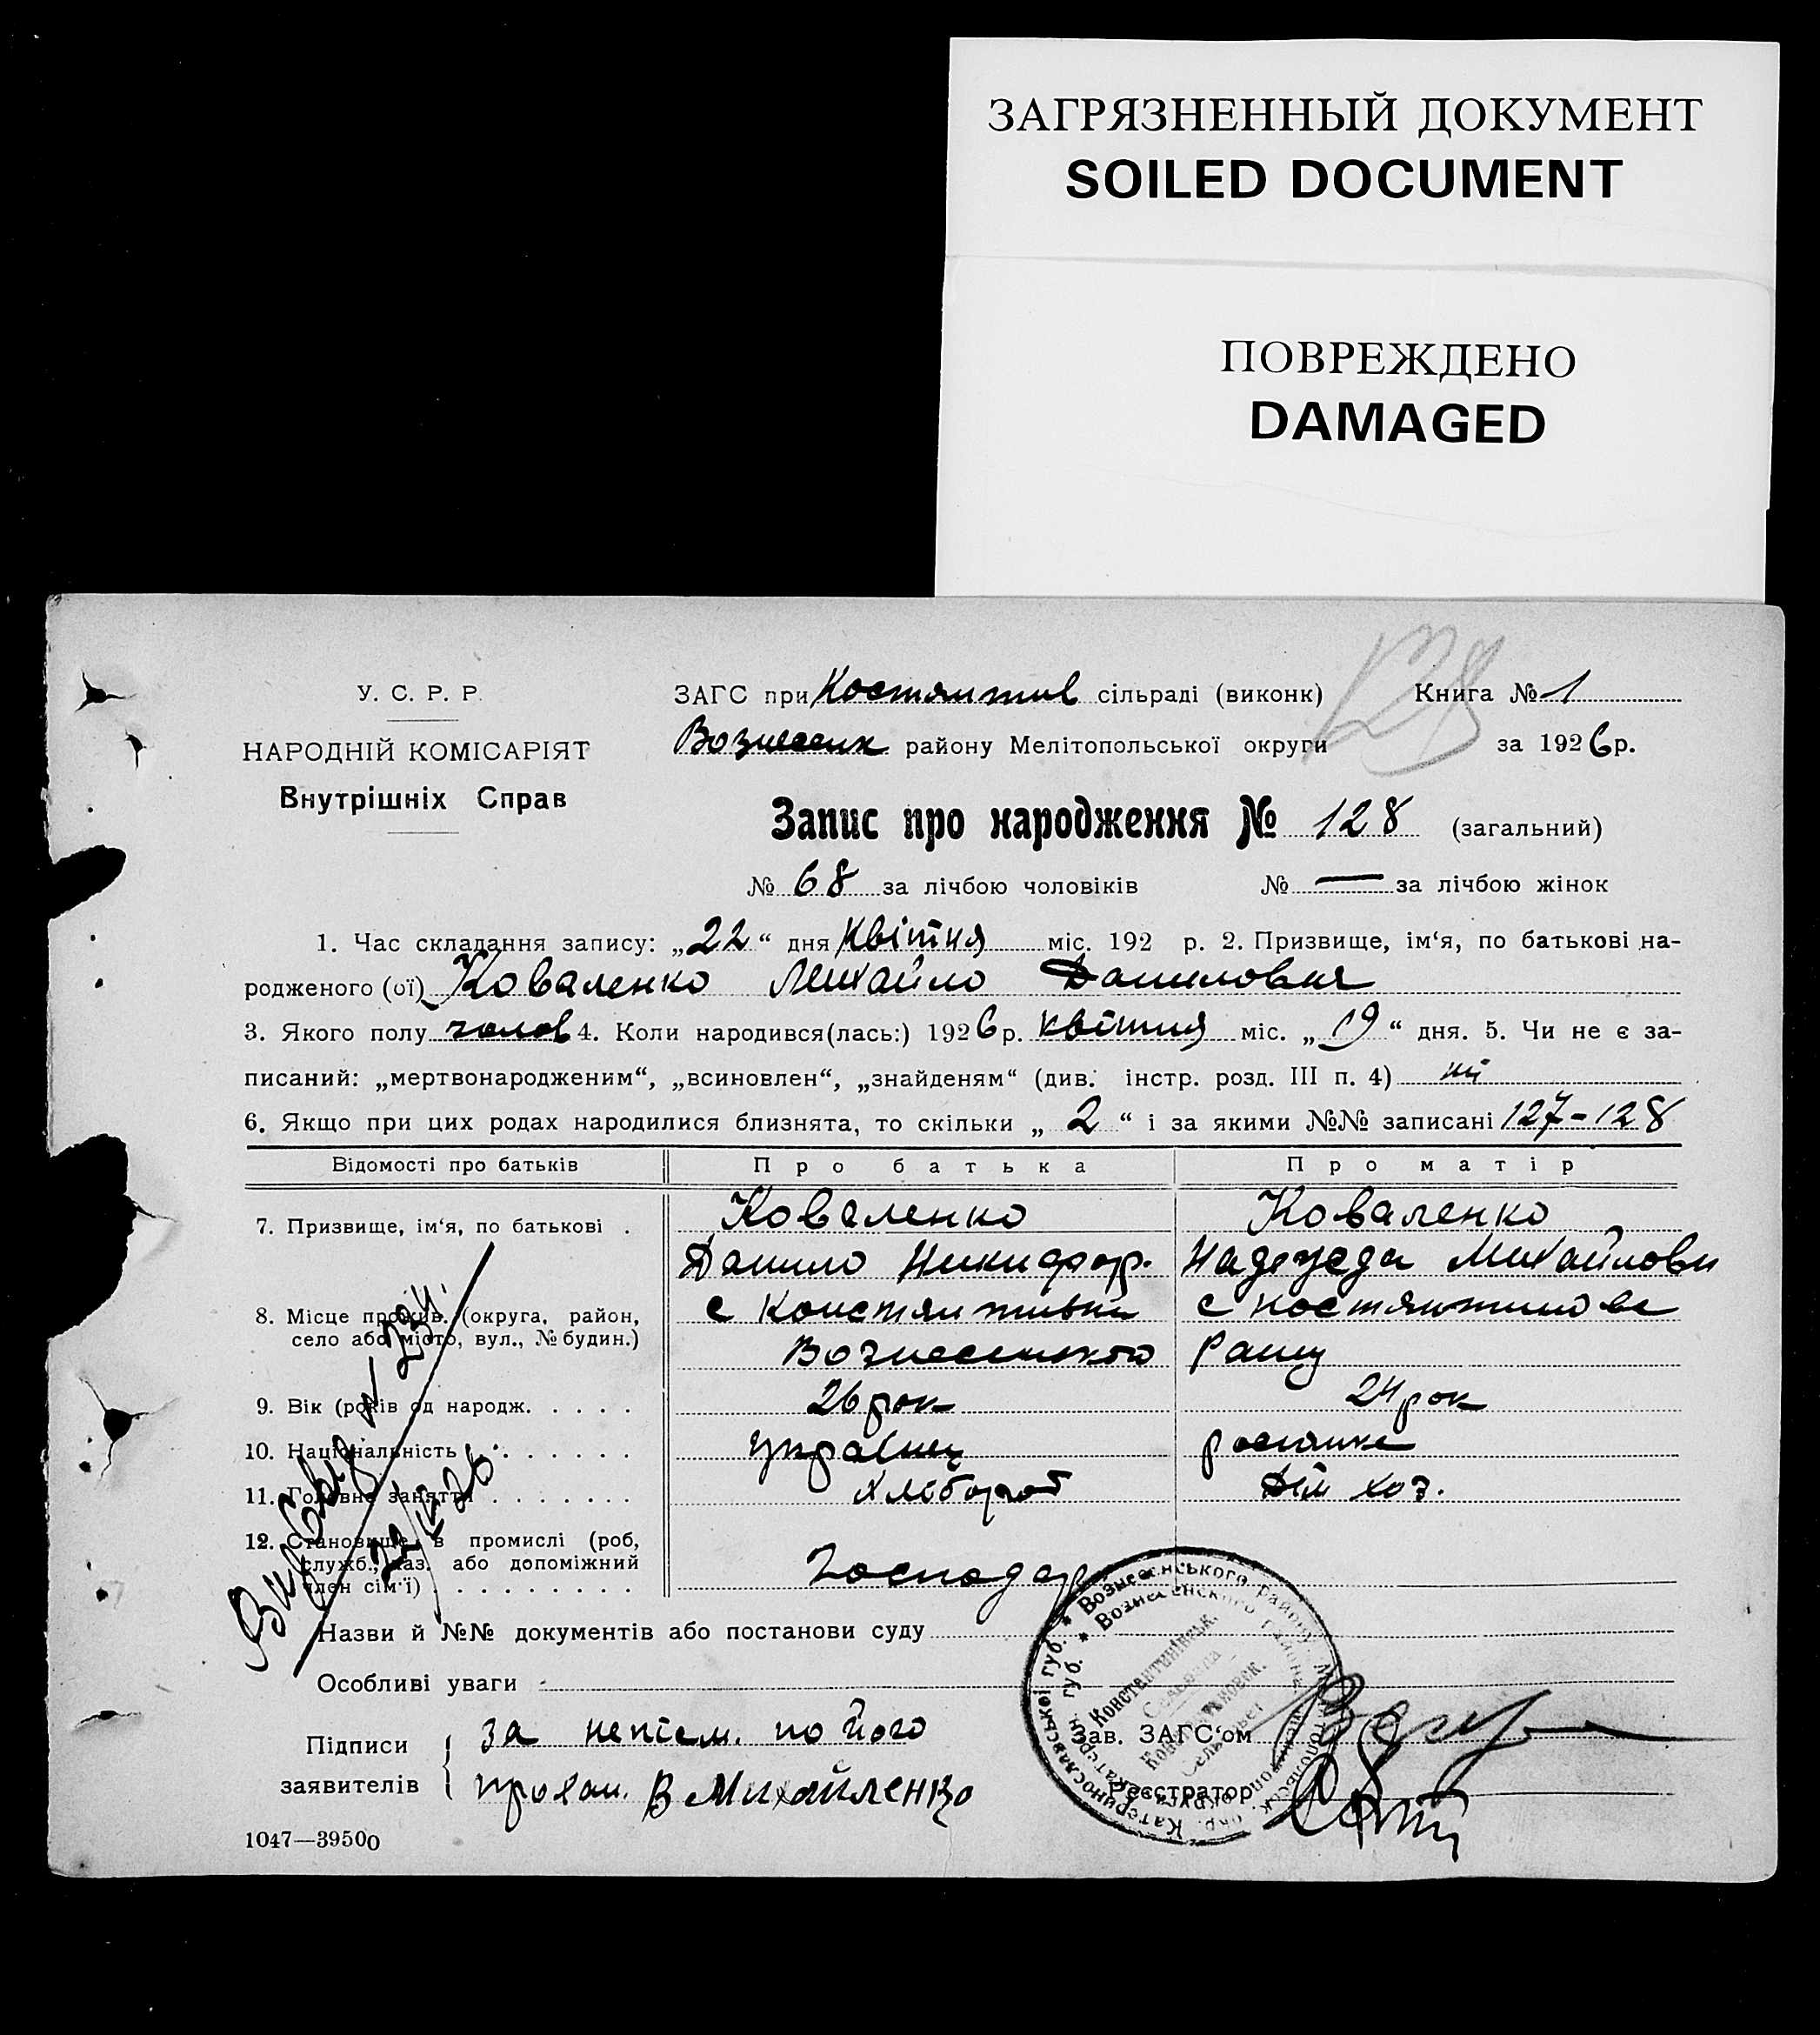 ЗАГРЯЗНЕННЫЙ ДОКУМЕНТ
SOILED DOCUMENT
ПОВРЕЖДЕНО
DAMAGED
128
У. С. Р. Р.
НАРОДНІЙ КОМІСАРІЯТ
Внутрішніх Справ
ЗАГС при Костянтив сільраді (виконк) Книга № 1
Вознесенк району Мелітопольської округи за 1926 р.
Запис про народження № 128 (загальний)
№ 68 за лічбою чоловіків № — за лічбою жінок
1. Час складання запису: „22“ дня Квітня міс. 192 р. 2. Призвище, ім‘я, по батькові на-
родженого (ої) Коваленко Михайло Данилович
3. Якого полу чолов 4. Коли народився(лась:) 1926 р. квітня міс. „19“ дня. 5. Чи не є за-
писаний: „мертвонародженим“, „всиновлен“, „знайденям“ (див. інстр. розд. III п. 4) ні
6. Якщо при цих родах народилися близнята, то скільки „2“ і за якими №№ записані 127-128
Відомості про батьків Про батька Про матір
7. Призвище, ім‘я, по батькові . Коваленко Коваленко
Данило Никифор. Надежда Михайловн
8. Місце прожив. (округа, район, с Констянтивки с Костянтинове
село або місто, вул., № будин.)
Вознесенкого Району
9. Вік (років од народж. . . . . 26 рок 24 рок
10. Національність . . . . . . . Українец росіянка
11. Головне заняття . . . . . . . Хлібороб Дім хоз.
12. Становище в промислі (роб,
служб., хаз. або допоміжний
член сім‘ї) . . . . . . . . . Господар
22/IV 26
Назви й №№ документів або постанови суду
Особливі уваги
Підписи заявителів { за непісм. по його
прохан. В Михайленко
Зав. ЗАГС‘ом
Реєстратор
Катеринославської губ. * Вознесенського району
Константинівськ.
1047—39500